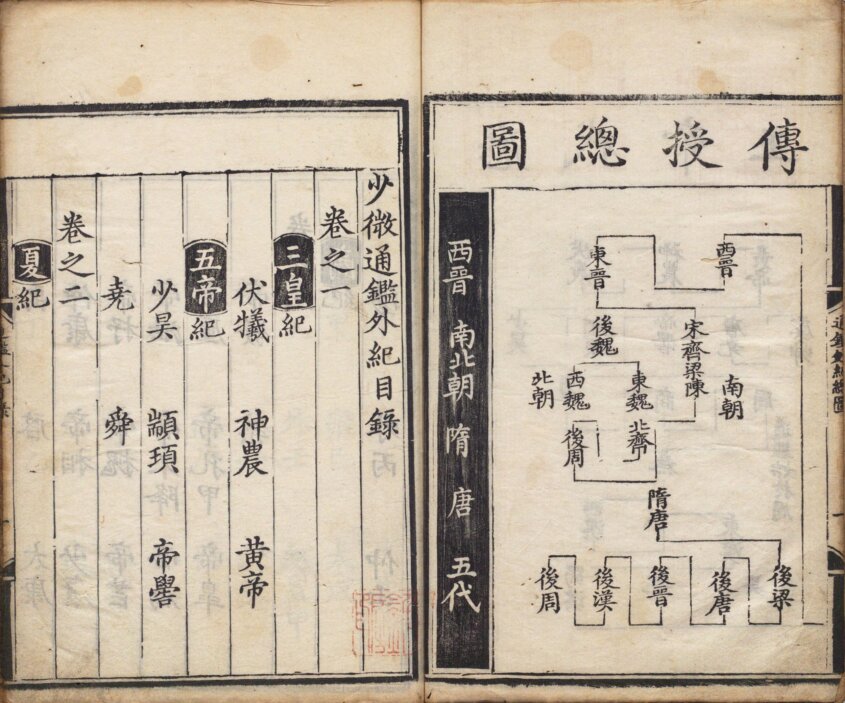 傳授總圖
西晉
東晉
宋齊梁陳
南朝
後魏
東魏
西魏
北朝
北齊
後周
隋唐
後梁
後唐
後晉
後漢
後周
西晉 南北朝 隋 唐 五代
少微通鑑外紀目錄
卷之一
三皇紀
伏犧 神農 黃帝
五帝紀
少昊 顓頊 帝嚳
堯 舜
卷之二
夏紀